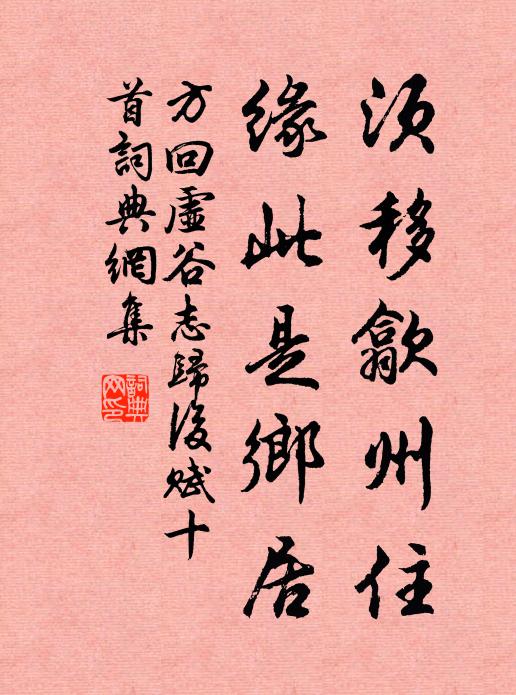 須移歙州住
緣此是鄉居
方回虛谷志歸後賦十
首詞典網集
詞典網印